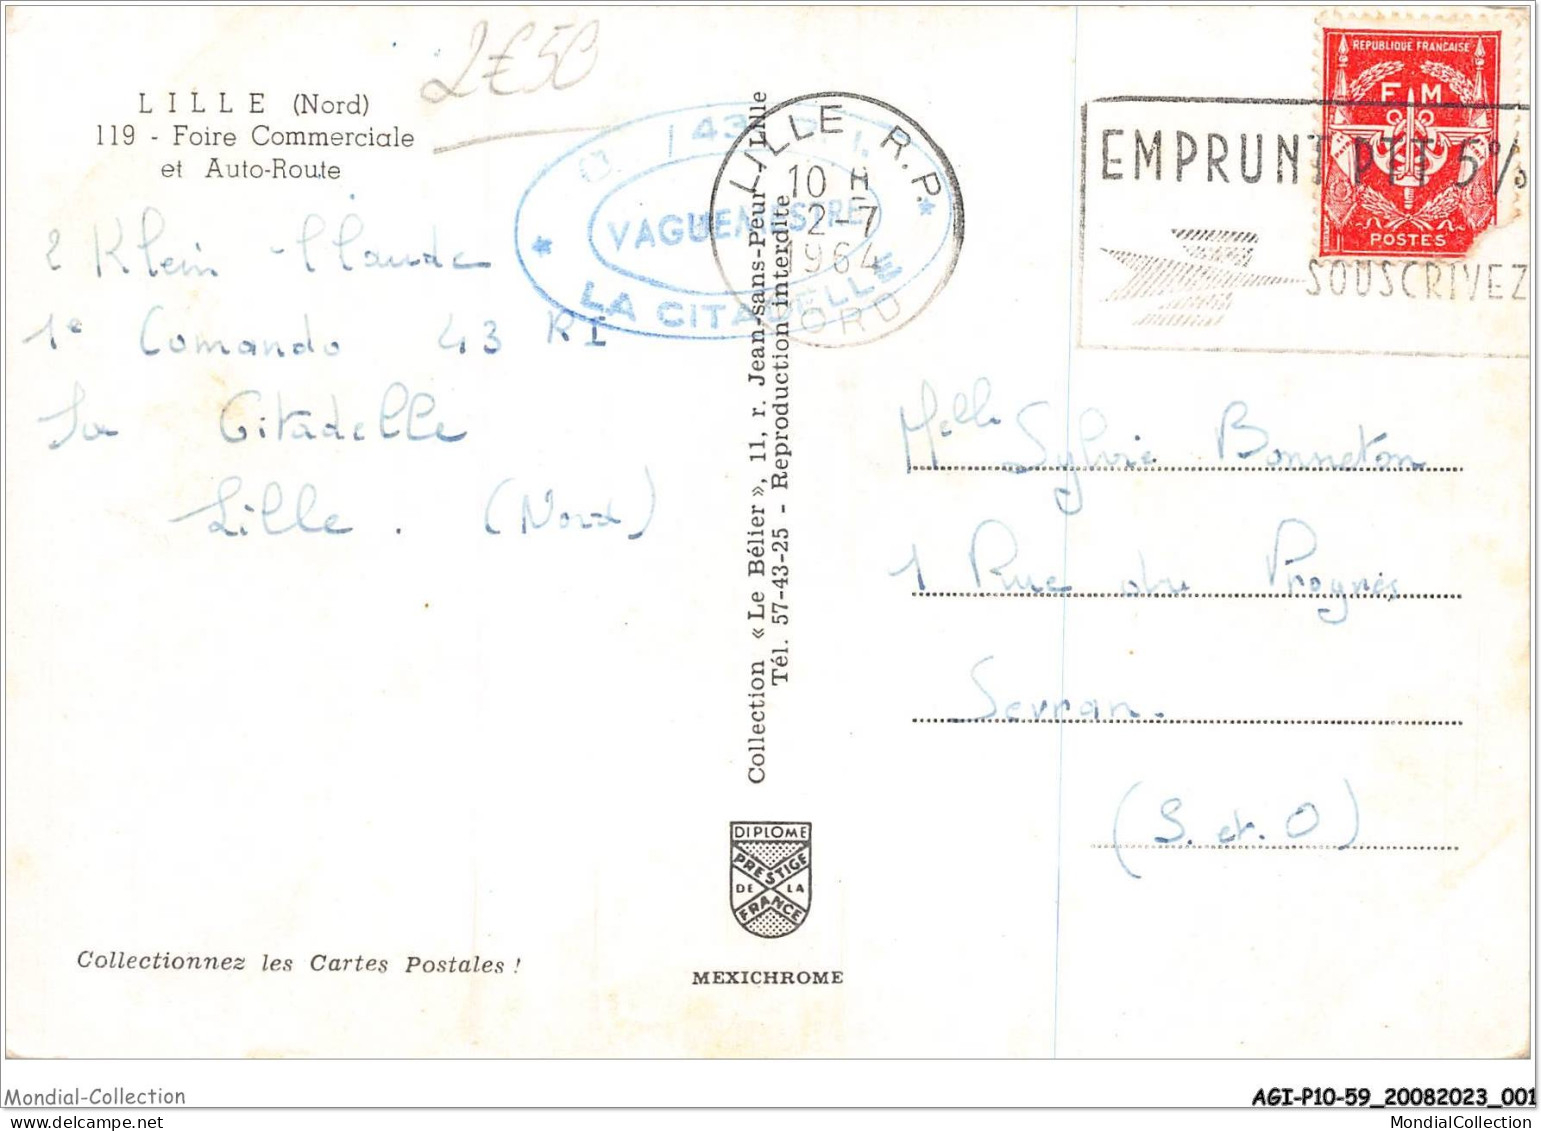 2€50
LILLE (Nord)
119 - Foire Commerciale
et Auto-Route
2 Klein Claude
1e Comando 43 RI
La Citadelle
Lille . (Nord)
43
VAGUEMESTRE
LA CITADELLE
LILLE R.P.
10 H
2-7
1964
NORD
EMPRUNT PTT 5%
SOUSCRIVEZ
REPUBLIQUE FRANCAISE
F M
POSTES
Collection « Le Bélier », 11, r. Jean-sans-Peur - Lille
Tél. 57-43-25 - Reproduction interdite
Melle Sylvie Bonneton
1 Rue du Progrès
Sevran.
(S. et. O)
DIPLOME
PRESTIGE
DE LA
FRANCE
MEXICHROME
Collectionnez les Cartes Postales !
Mondial-Collection
AGI-P10-59_20082023_001
MondialCollection